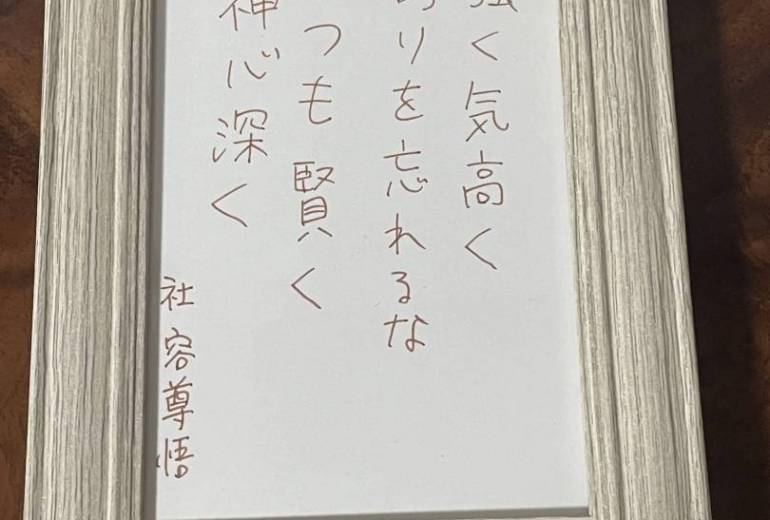 く気高く
りを忘れるな
つも賢く
心深く
社容尊悟